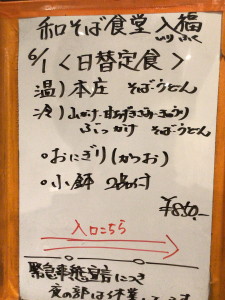 和そば食堂 入福
いり ふく
6/1 <日替定食>
温) 本庄 そばうどん
冷) 山かけ
ぶっかけ そばうどん
・おにぎり(かつお)
・小鉢 2品付
¥850.-
入口こちら
緊急事態宣言につき
夜の部は休業